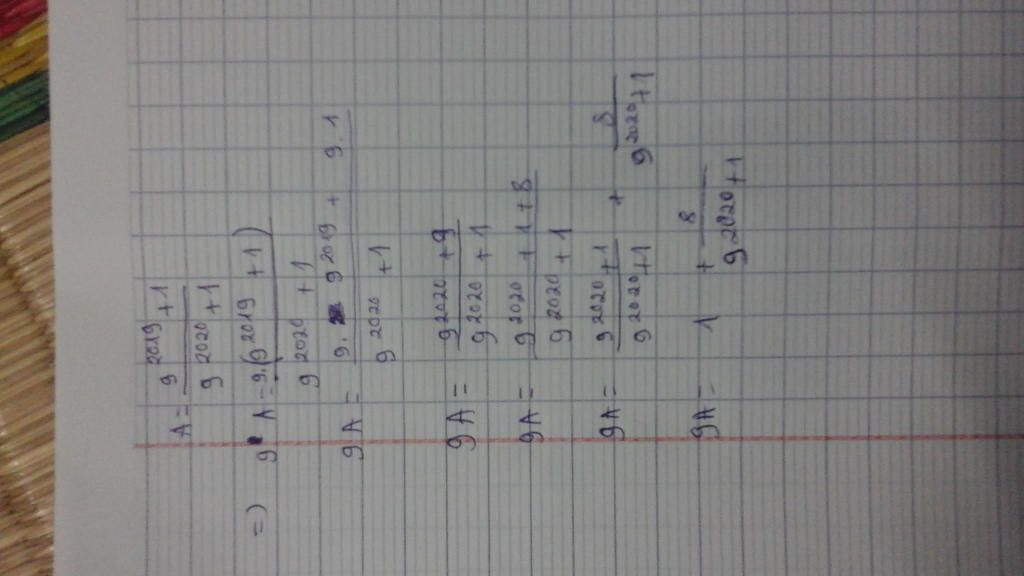 A = \frac{9^{2019} + 1}{9^{2020} + 1}
=) 9 A = \frac{9.(9^{2019} + 1)}{9^{2020} + 1}
9A = \frac{9. 9^{2019} + 9.1}{9^{2020} + 1}
9A = \frac{9^{2020} + 9}{9^{2020} + 1}
9A = \frac{9^{2020} + 1 + 8}{9^{2020} + 1}
9A = \frac{9^{2020} + 1}{9^{2020} + 1} + \frac{8}{9^{2020} + 1}
9A = 1 + \frac{8}{9^{2020} + 1}